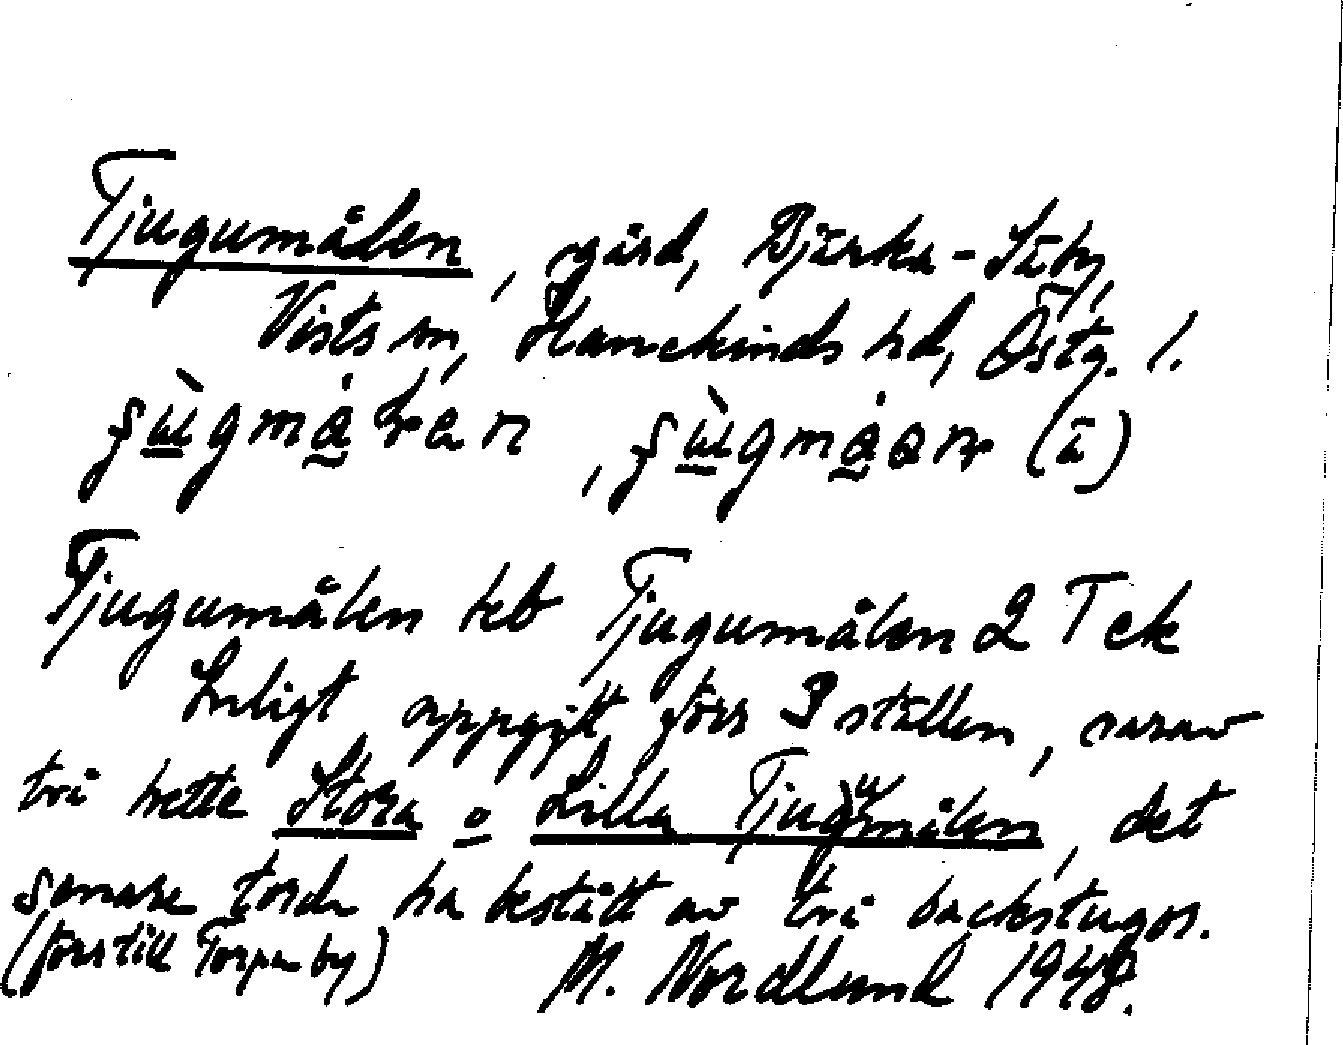 Tjugumålen, gård, Bjärka-Säby,
Vists sn, Hanekinds hd, Östg. l.
Tjugumålen teb Tjugumålen 2 T ek
Enligt uppgift förr 3 ställen, varav
två hette Stora o Lilla Tjugumålen, det
senare torde ha bestått av två backstugor.
(förr till Torpa by) M. Nordlund 1948.